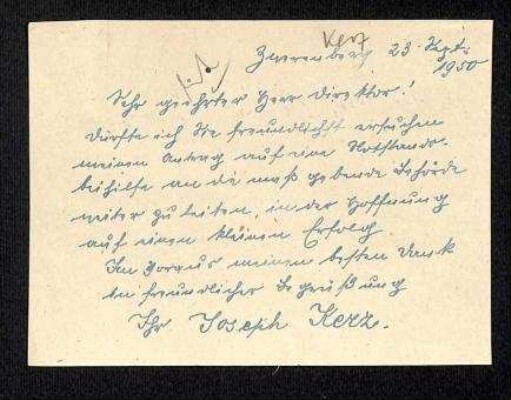 Kerz
Zwerenberg 23. Sept.
1950
Sehr geehrter Herr Direktor!
Dürfte ich Sie freundlichst ersuchen
meinen Antrag auf eine Notstands-
beihilfe an die maß gebende Behörde
weiter zu leiten, in der Hoffnung
auf einen kleinen Erfolg.
Im Voraus meinen besten Dank
in freundlicher Begrüßung
Ihr Joseph Kerz.